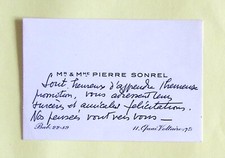 Mr & Mme PIERRE SONREL
Sont heureux d'apprendre l'heureuse
promotion, vous adressent leurs
sincères et amicales félicitations.
Nos pensées vont vers vous —
11, Quai Voltaire - 75